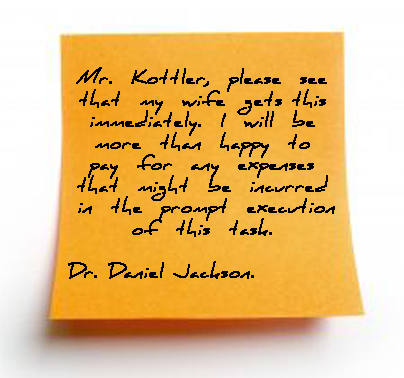 Mr. Kottler, please see
that my wife gets this
immediately. I will be
more than happy to
pay for any expenses
that might be incurred
in the prompt execution
of this task.
Dr. Daniel Jackson.